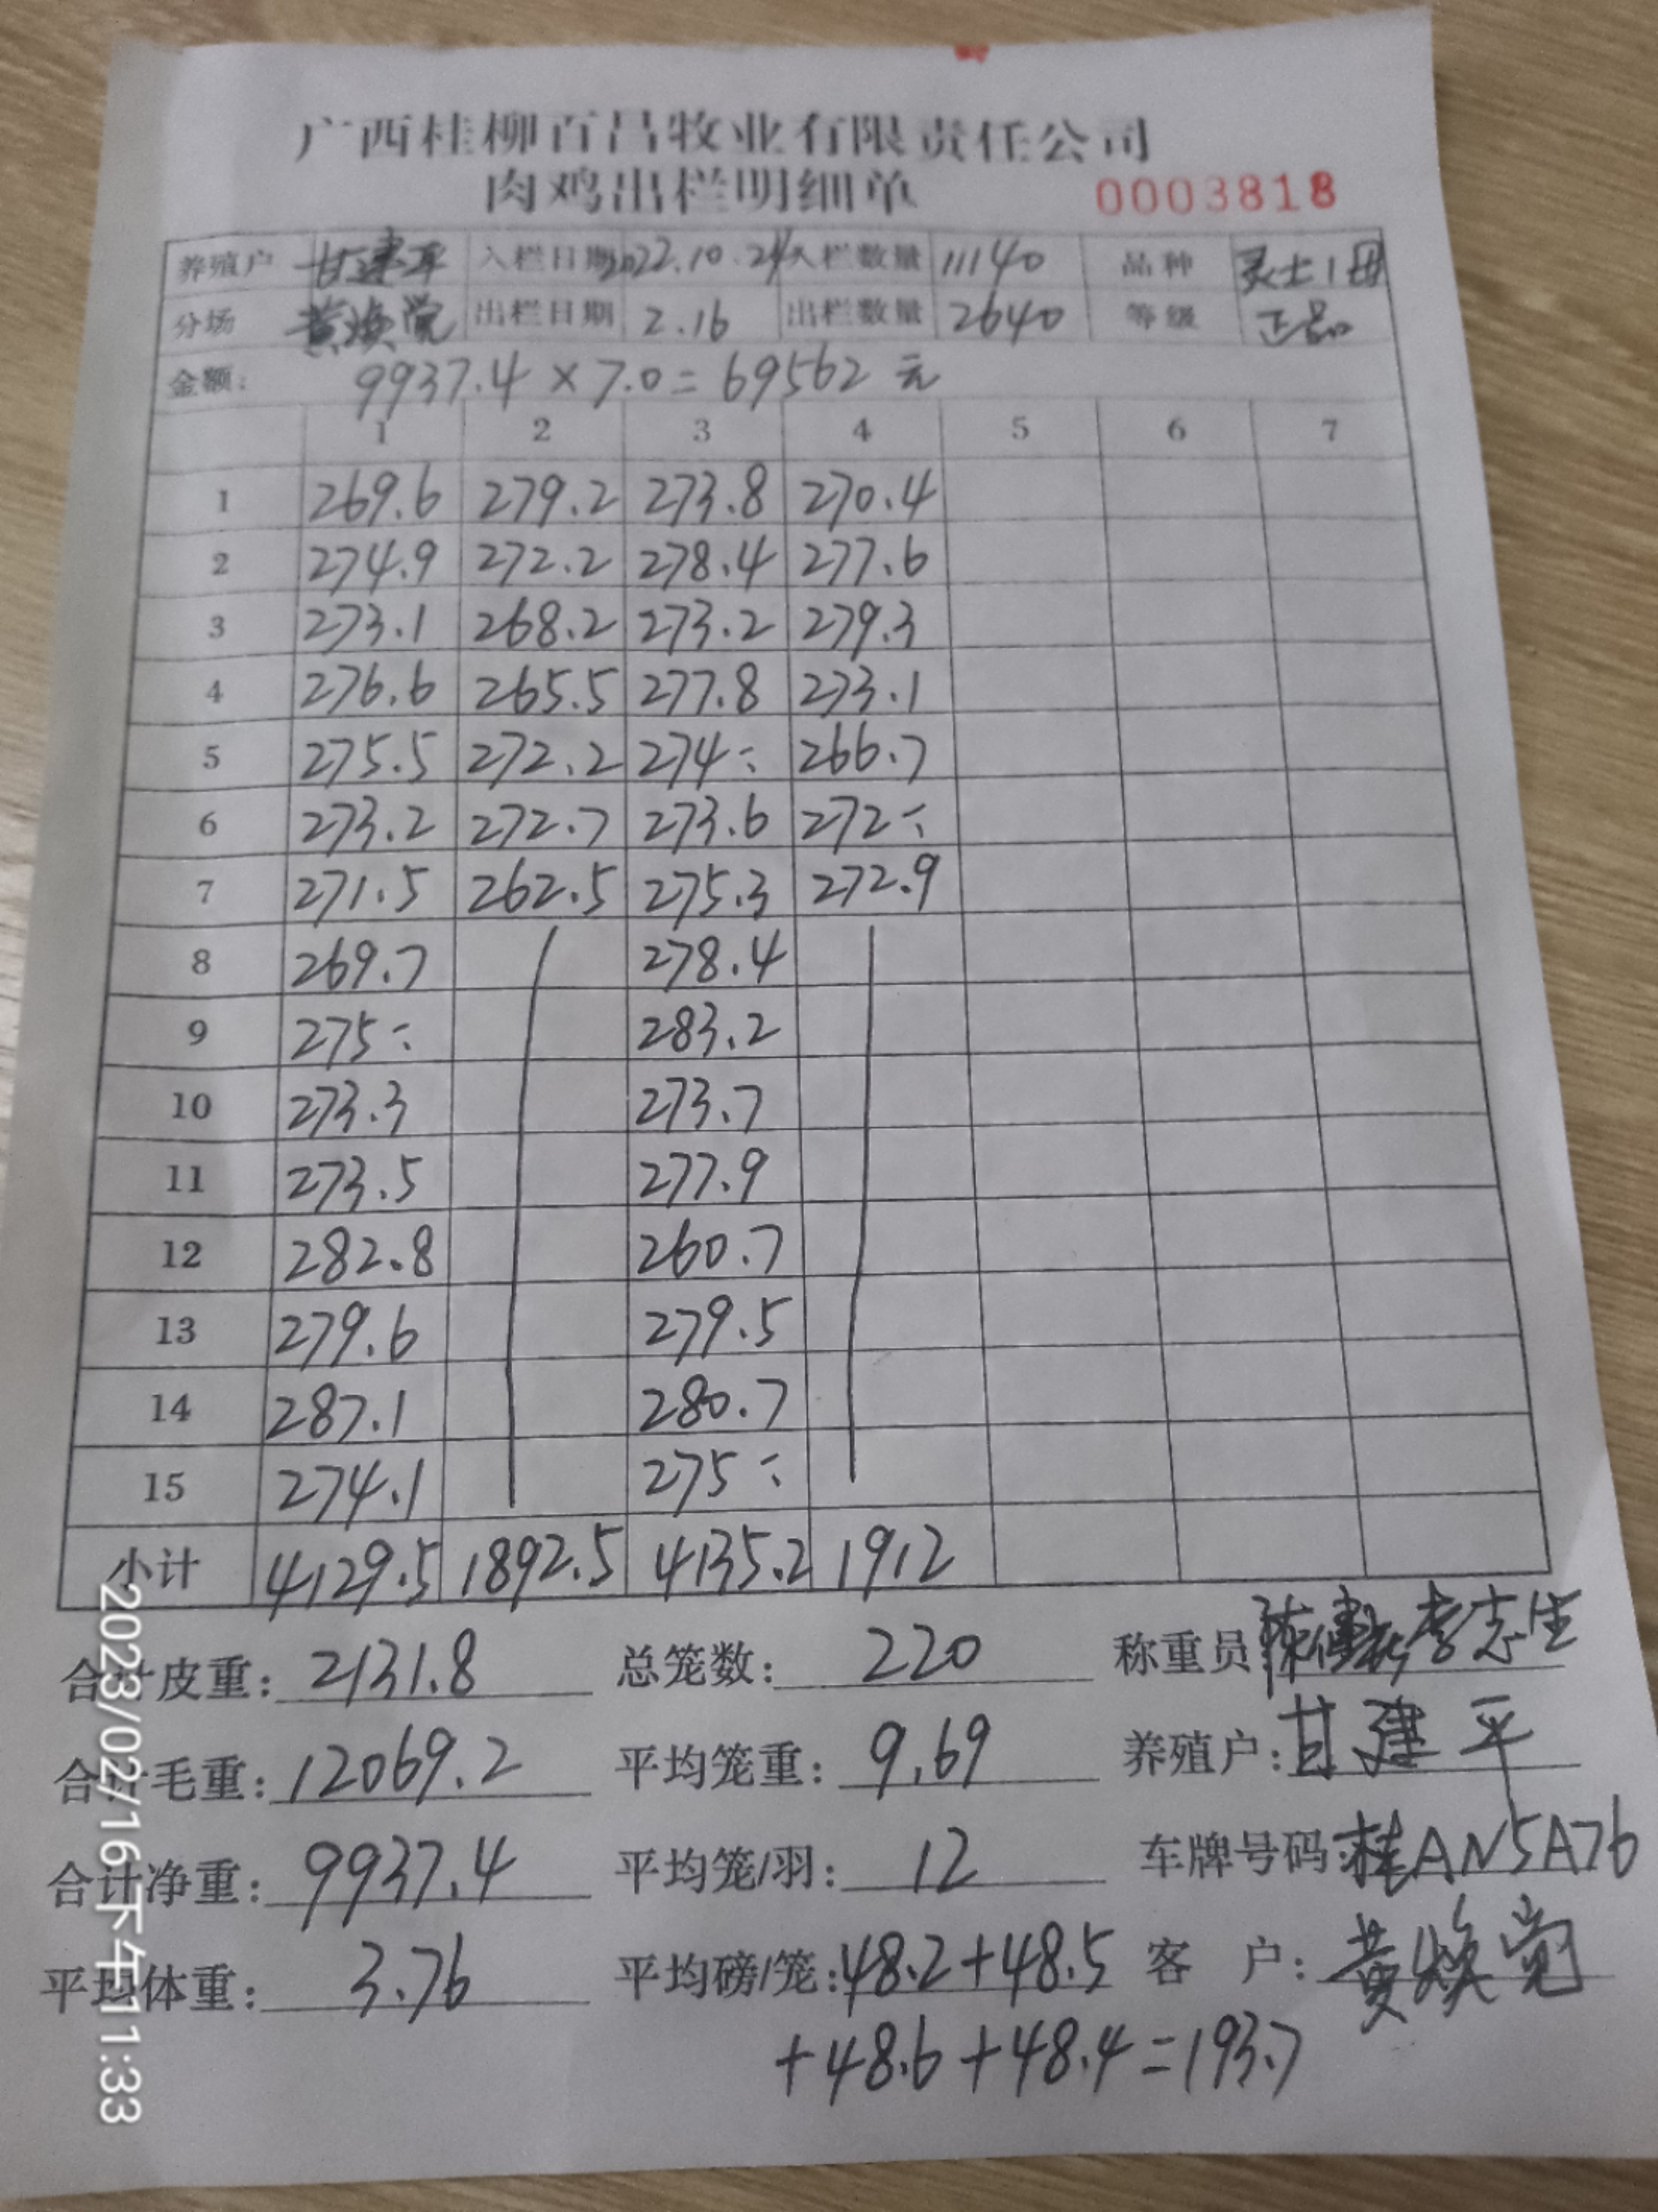 广西桂柳百昌牧业有限责任公司
肉鸡出栏明细单 0003818
养殖户 甘建平 入栏日期 2022.10.24 入栏数量 11140 品种 灵士1母
分场 黄焕觉 出栏日期 2.16 出栏数量 2640 等级 正品
金额: 9937.4×7.0=69562 元
1 2 3 4 5 6 7
1 269.6 279.2 273.8 270.4
2 274.9 272.2 278.4 277.6
3 273.1 268.2 273.2 279.3
4 276.6 265.5 277.8 273.1
5 275.5 272.2 274÷ 266.7
6 273.2 272.7 273.6 272÷
7 271.5 262.5 275.3 272.9
8 269.7 278.4
9 275÷ 283.2
10 273.3 273.7
11 273.5 277.9
12 282.8 260.7
13 279.6 279.5
14 287.1 280.7
15 274.1 275÷
小计 4129.5 1892.5 4135.2 1912
合计皮重: 2131.8 总笼数: 220 称重员 李志生
合计毛重: 12069.2 平均笼重: 9.69 养殖户: 甘建平
合计净重: 9937.4 平均笼/羽: 12 车牌号码: 桂AN5A76
平均体重: 3.76 平均磅/笼: 48.2+48.5 客 户: 黄焕觉
+48.6+48.4=193.7
2023/02/16下午11:33